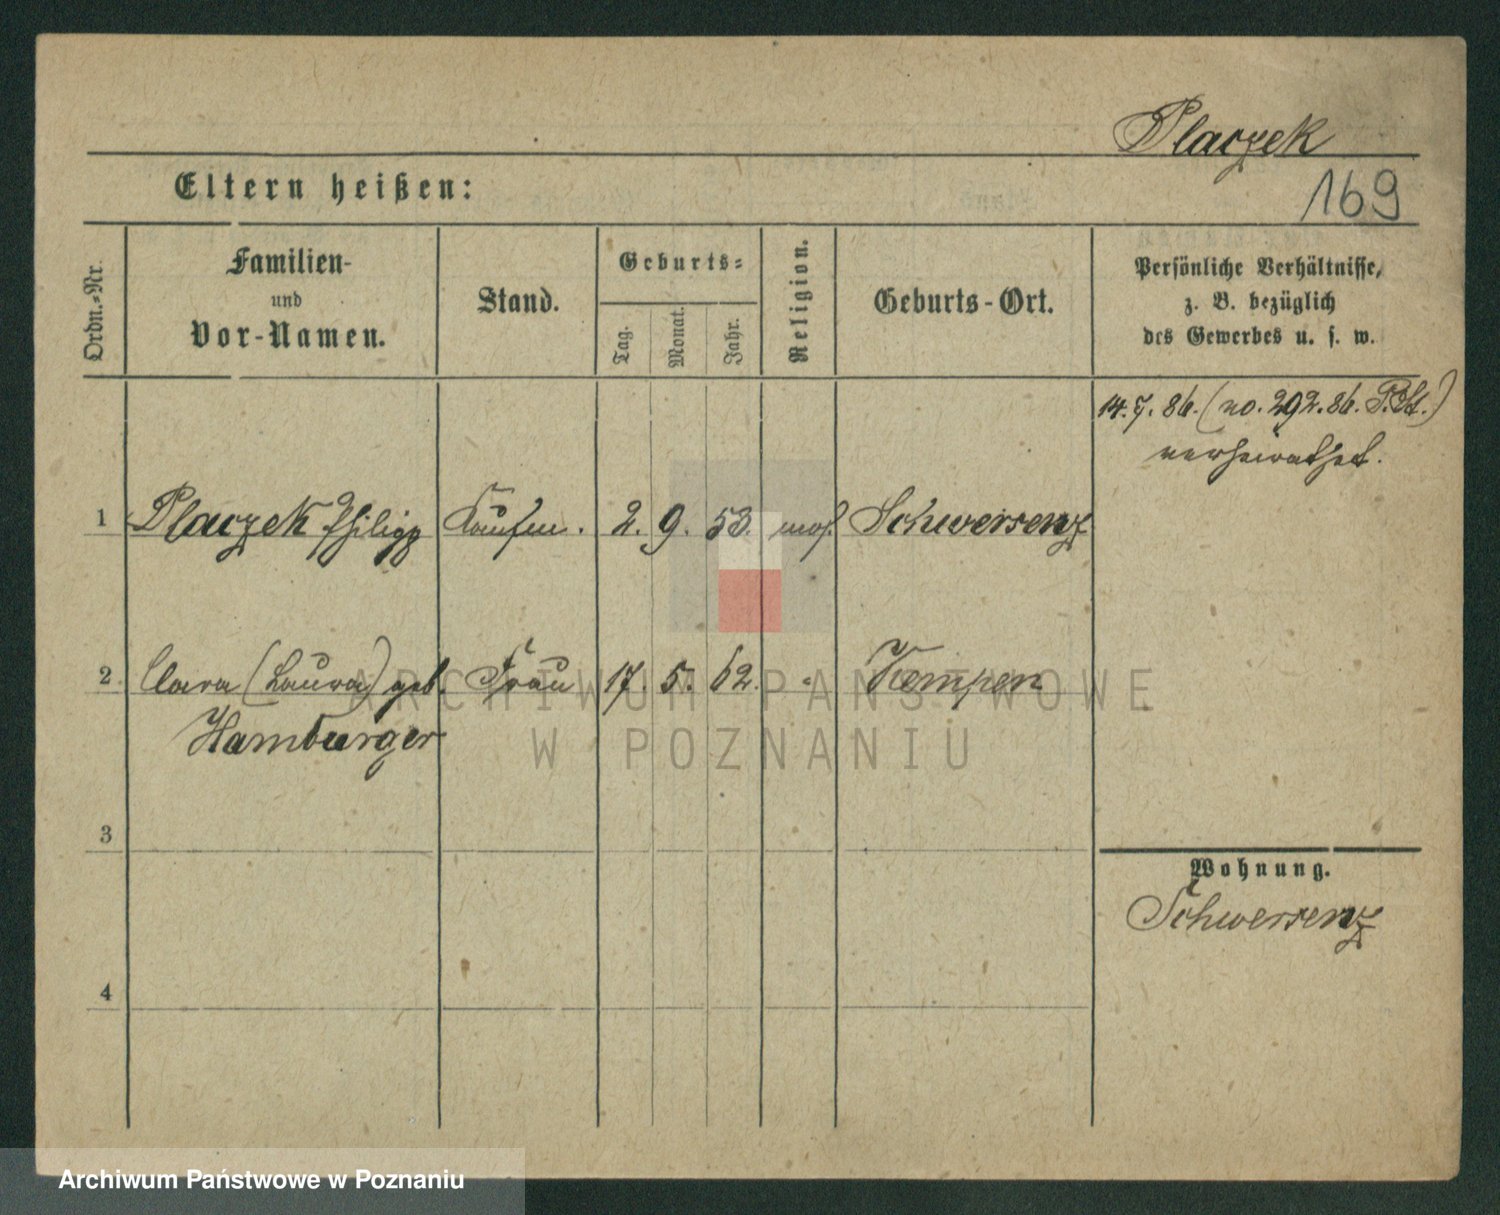 Placzek
169
Eltern heißen:
Ordn.-Nr.
Familien-
und
Vor-Namen.
Stand.
Geburts-
Tag.
Monat.
Jahr.
Religion.
Geburts-Ort.
Persönliche Verhältnisse,
z. B. bezüglich
des Gewerbes u. s. w.
14.7.86. (no. 292.86. P.St.)
verheirathet.
1 Placzek Philipp Kaufm. 2. 9. 53. mos. Schwersenz
2 Clara (Laura) geb. Frau 17. 5. 62. " Kempen
Hamburger
3
4
Wohnung.
Schwersenz
ARCHIWUM PAŃSTWOWE
W POZNANIU
Archiwum Państwowe w Poznaniu